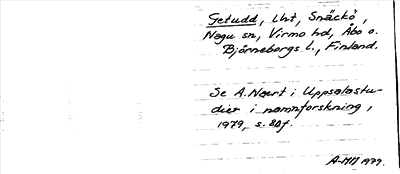 Getudd, Lht, Snäckö,
Nagu sn, Virmo hd, Åbo o.
Björneborgs l., Finland.
Se A. Naert i Uppsalastu-
dier i namnforskning,
1979, s. 80f.
A-MM 1979.